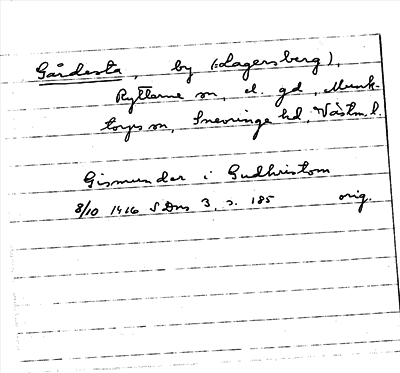 Gärdesta, by (: Lagersberg),
Rytterne sn, el. gd, Munk-
torps sn, Snevringe hd, Västm. l.
Gismundar i Gudhristom
8/10 1416 SDns 3, s. 185 orig.